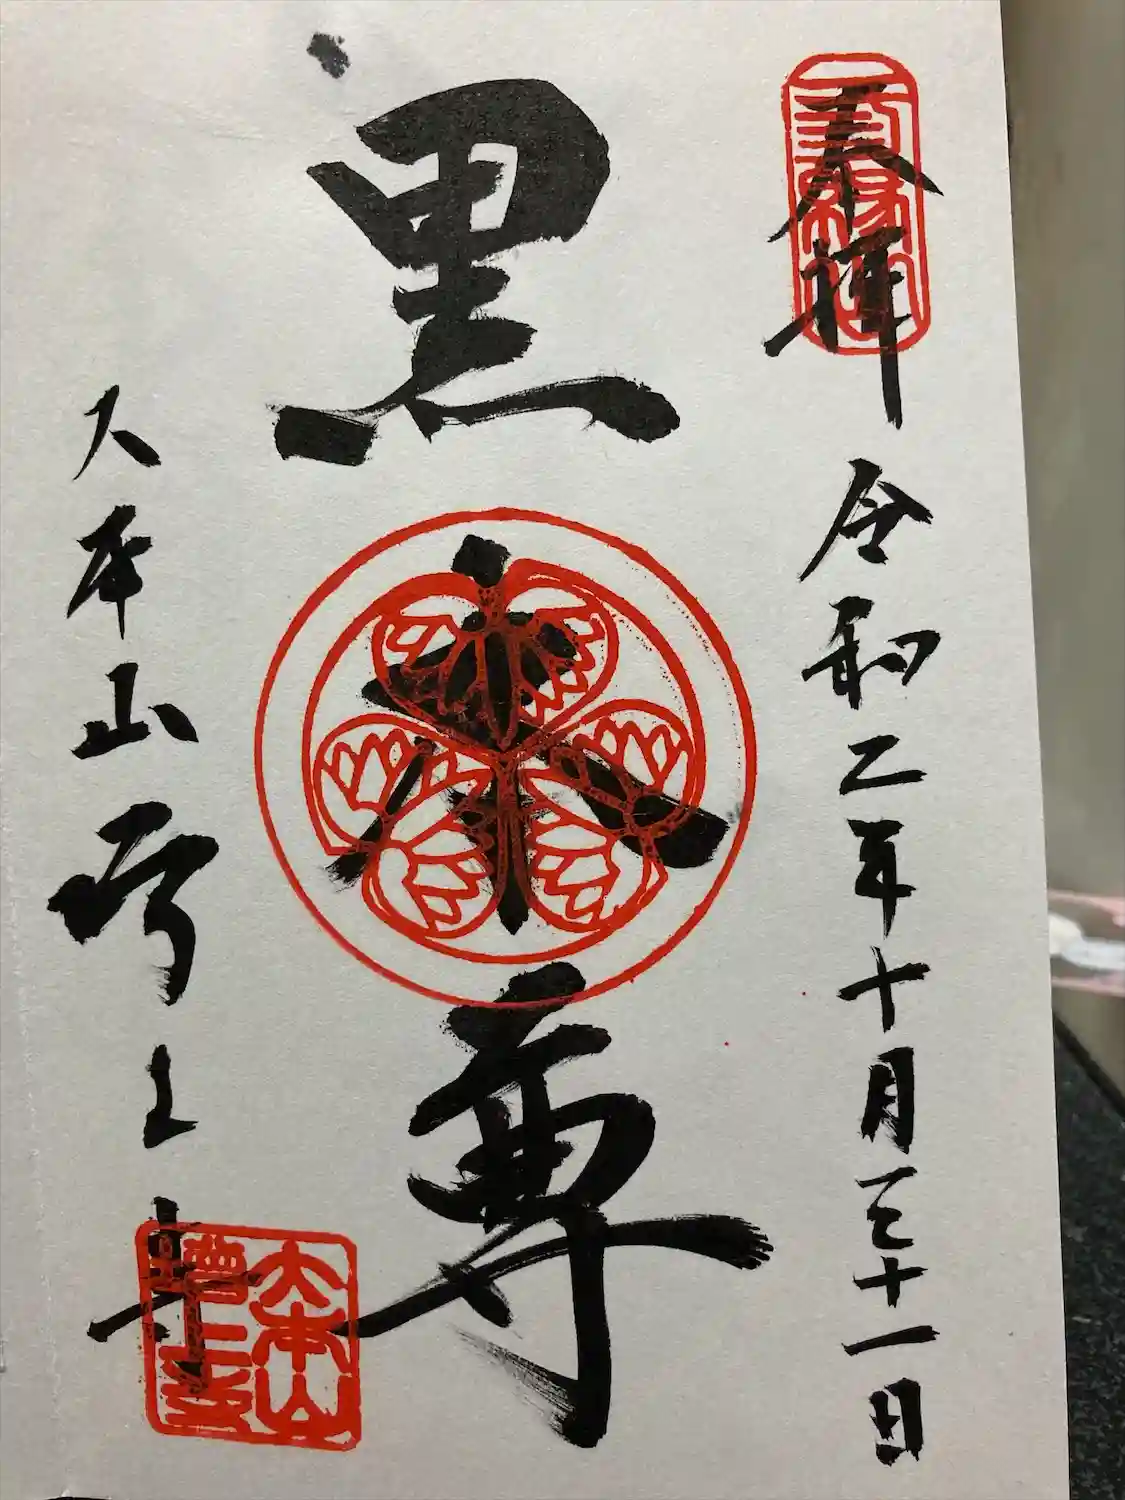 奉拝
令和二年十月三十一日
黒本尊
大本山増上寺
大本山
増上寺